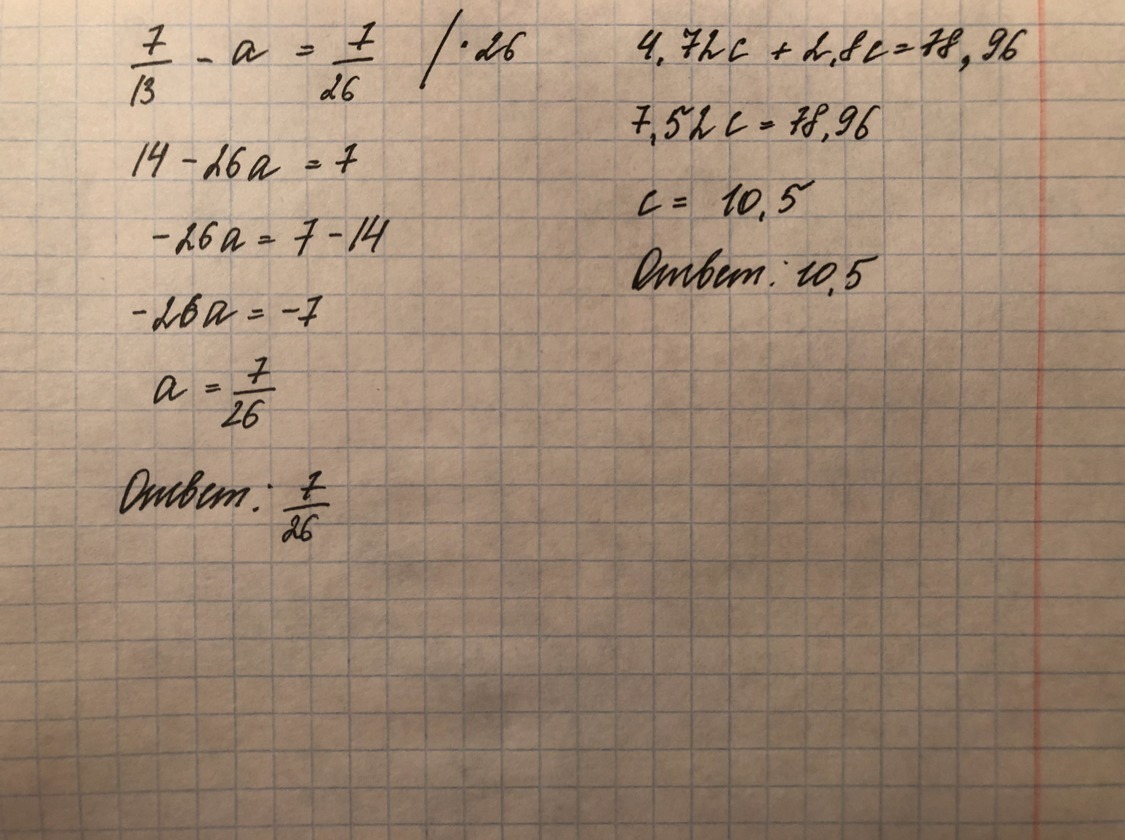 7/13 - a = 7/26 / · 26
14 - 26a = 7
-26a = 7 - 14
-26a = -7
a = 7/26
Ответ: 7/26
4,72c + 2,8c = 78,96
7,52c = 78,96
c = 10,5
Ответ: 10,5